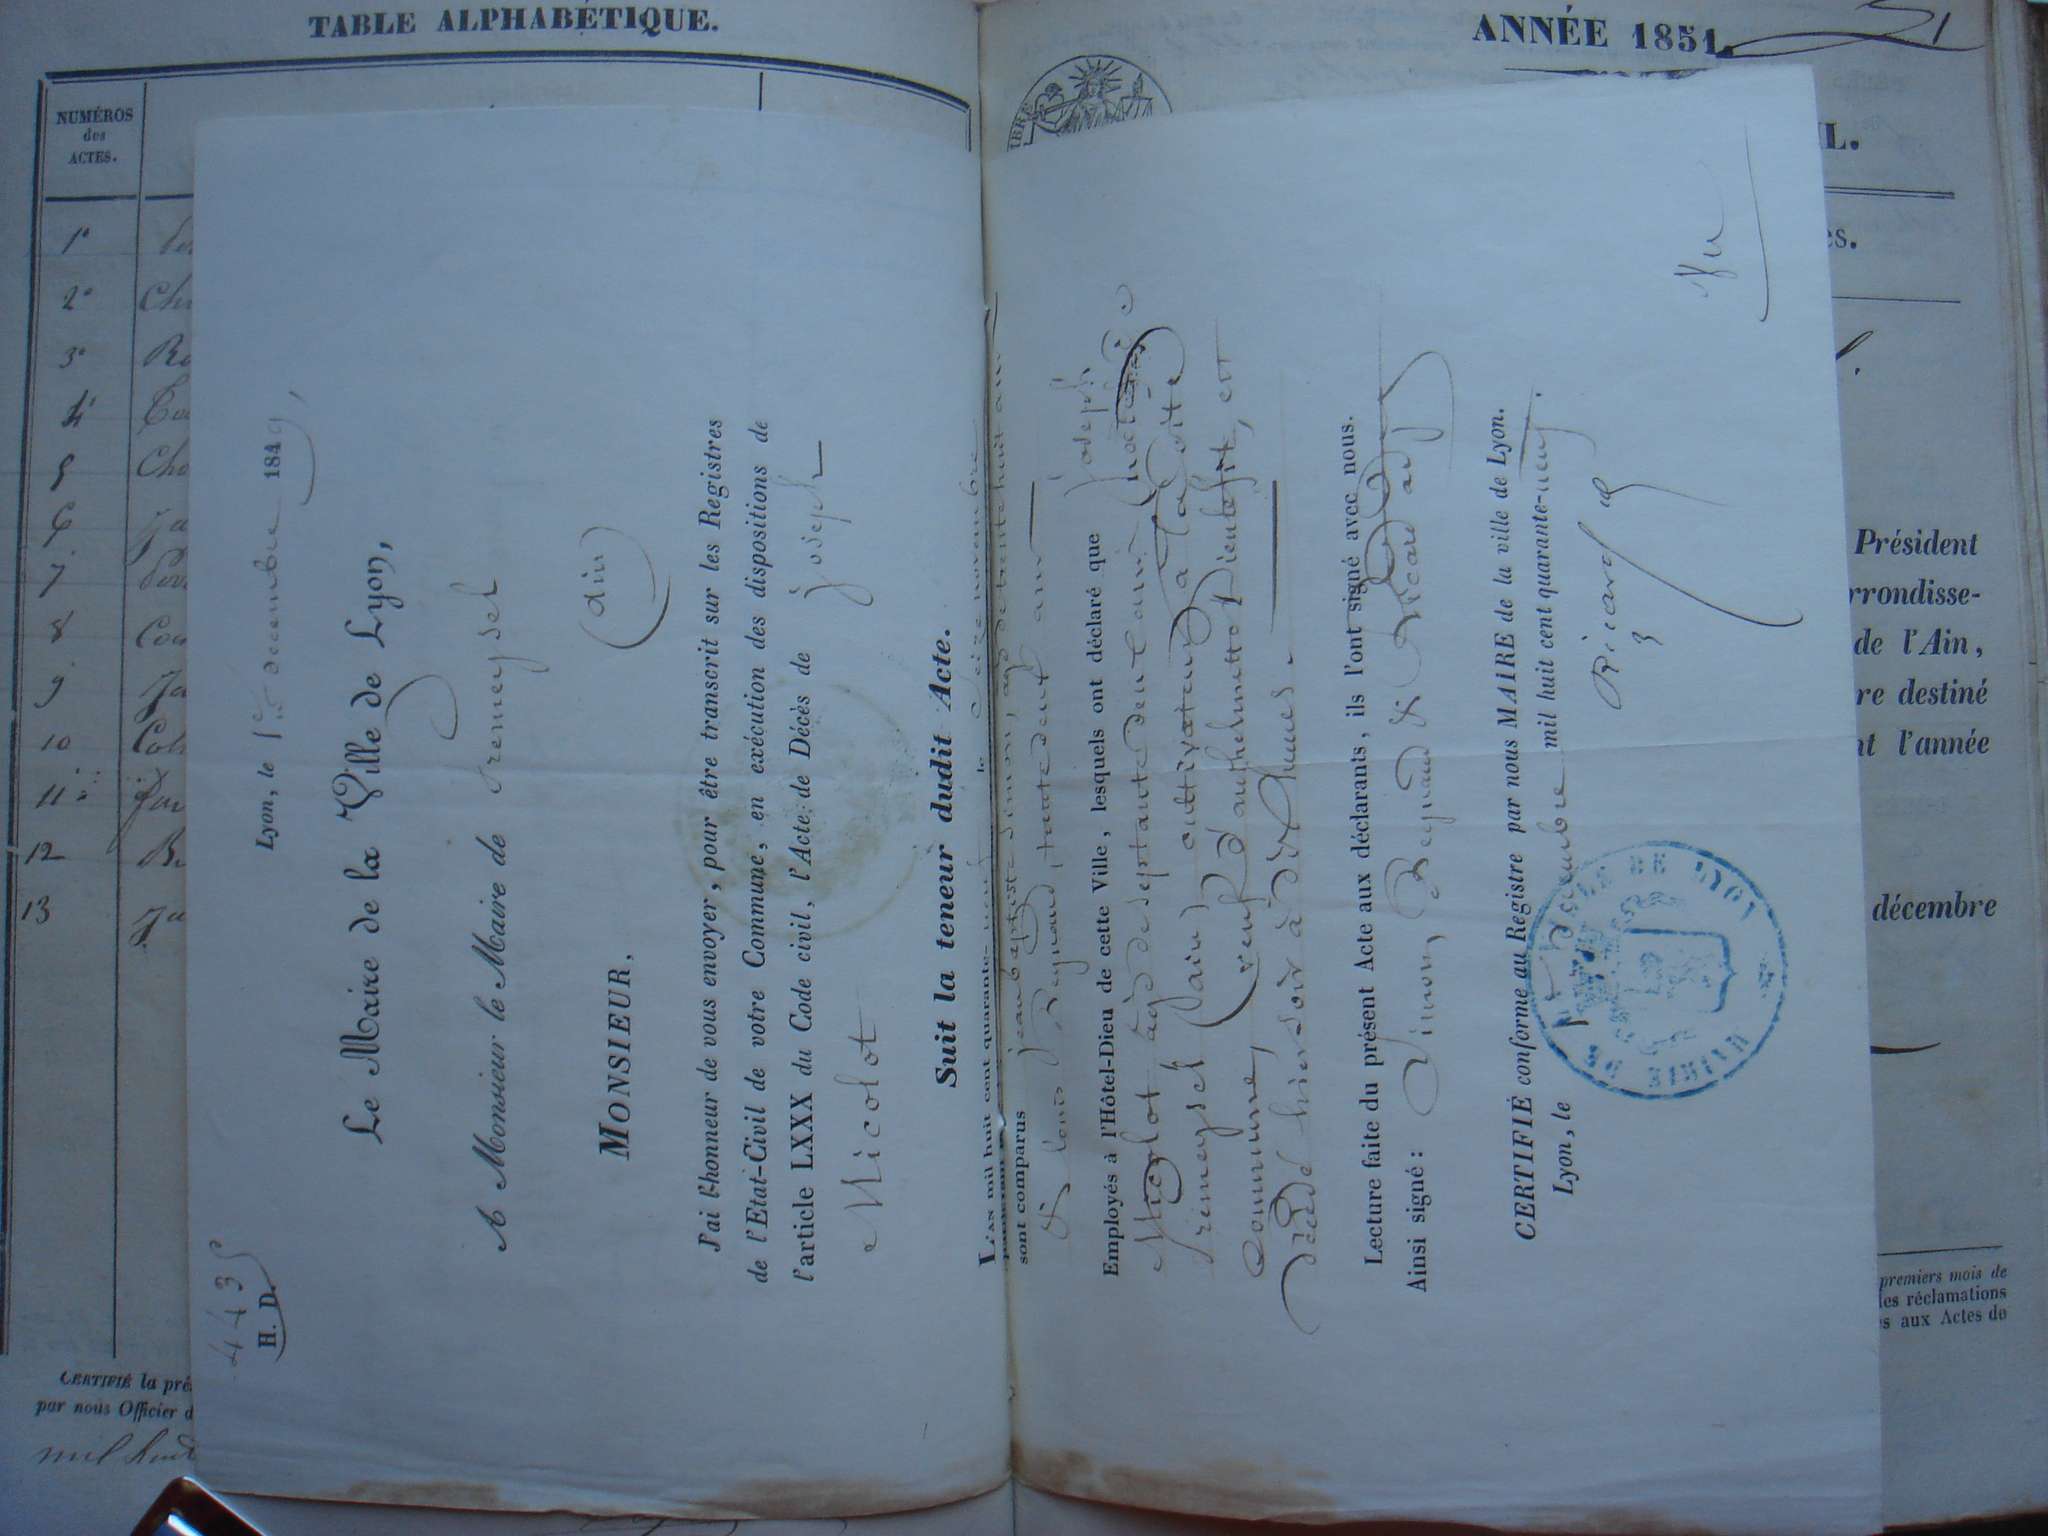 TABLE ALPHABÉTIQUE.
NUMÉROS
des
ACTES.
1°
2° Ch
3° Ro
4°
5 Cho
6 Ja
7
8 Cou
9 Ja
10
11°
12
13 Ja
CERTIFIÉ la pré
par nous Officier d
mil huit
4435
H. D.
Lyon, le 1er décembre 1849,
Le Maire de la Ville de Lyon,
A Monsieur le Maire de Premeysel
(ain)
MONSIEUR,
J'ai l'honneur de vous envoyer, pour être transcrit sur les Registres
de l'Etat-Civil de votre Commune, en exécution des dispositions de
l'article LXXX du Code civil, l'Acte de Décès de Joseph
Micolot
Suit la teneur dudit Acte.
L'AN mil huit cent quarante-neuf le seize novembre
sont comparus jean baptiste Simon, agé de trente huit ans
& louis Reynaud, trente deux ans
Employés à l'Hôtel-Dieu de cette Ville, lesquels ont déclaré que Joseph
Micolot âgé de septante deux ans,
Premeysel (ain) cultivateur à la dite
Commune, veuf d'anthelmette Dieulefit, est
décédé hier soir à dix heures.
Lecture faite du présent Acte aux déclarants, ils l'ont signé avec nous.
Ainsi signé: Simon, Reynaud & Ricard adj
CERTIFIÉ conforme au Registre par nous MAIRE de la ville de Lyon.
Lyon, le 1er décembre mil huit cent quarante-neuf.
Ricard
Vu
MAIRIE DE LA VILLE DE LYON
ANNÉE 1851.
51
L.
es.
Président
rrondisse-
de l'Ain,
re destiné
nt l'année
décembre
premiers mois de
les réclamations
s aux Actes de